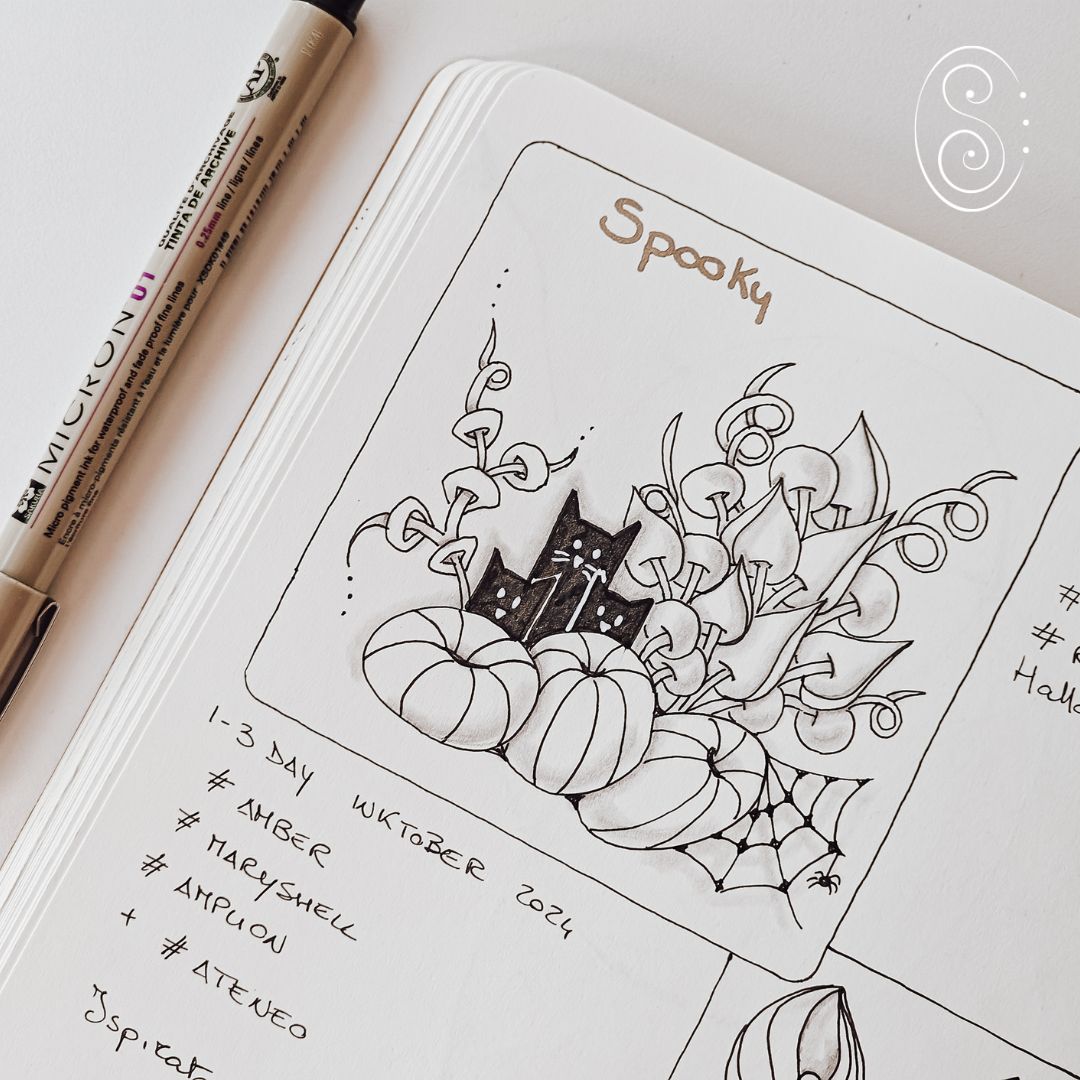 Spooky
1-3 DAY WKTOBER 2024
# AMBER
# MARYSHELL
# AMPLION
+ # ATENEO
#
#
SAKURA
MICRON 01
Micro pigment ink for waterproof and fade proof fine lines
Encre à micro-pigments résistant à l'eau et la lumière pour
TINTA DE ARCHIVE
QUALITÉ D'ARCHIVAGE
0.25mm line / ligne / lines
XSDK01#49
AP